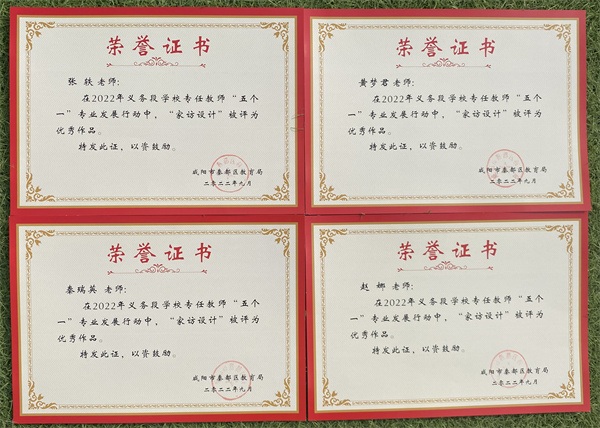 荣誉证书
张 轶 老师:
在2022年义务段学校专任教师“五个
一”专业发展行动中，“家访设计”被评为
优秀作品。
特发此证，以资鼓励。
咸阳市秦都区教育局
二〇二二年九月
荣誉证书
黄梦君 老师:
在2022年义务段学校专任教师“五个
一”专业发展行动中，“家访设计”被评为
优秀作品。
特发此证，以资鼓励。
咸阳市秦都区教育局
二〇二二年九月
荣誉证书
秦瑞英 老师:
在2022年义务段学校专任教师“五个
一”专业发展行动中，“家访设计”被评为
优秀作品。
特发此证，以资鼓励。
咸阳市秦都区教育局
二〇二二年九月
荣誉证书
赵 娜 老师:
在2022年义务段学校专任教师“五个
一”专业发展行动中，“家访设计”被评为
优秀作品。
特发此证，以资鼓励。
咸阳市秦都区教育局
二〇二二年九月